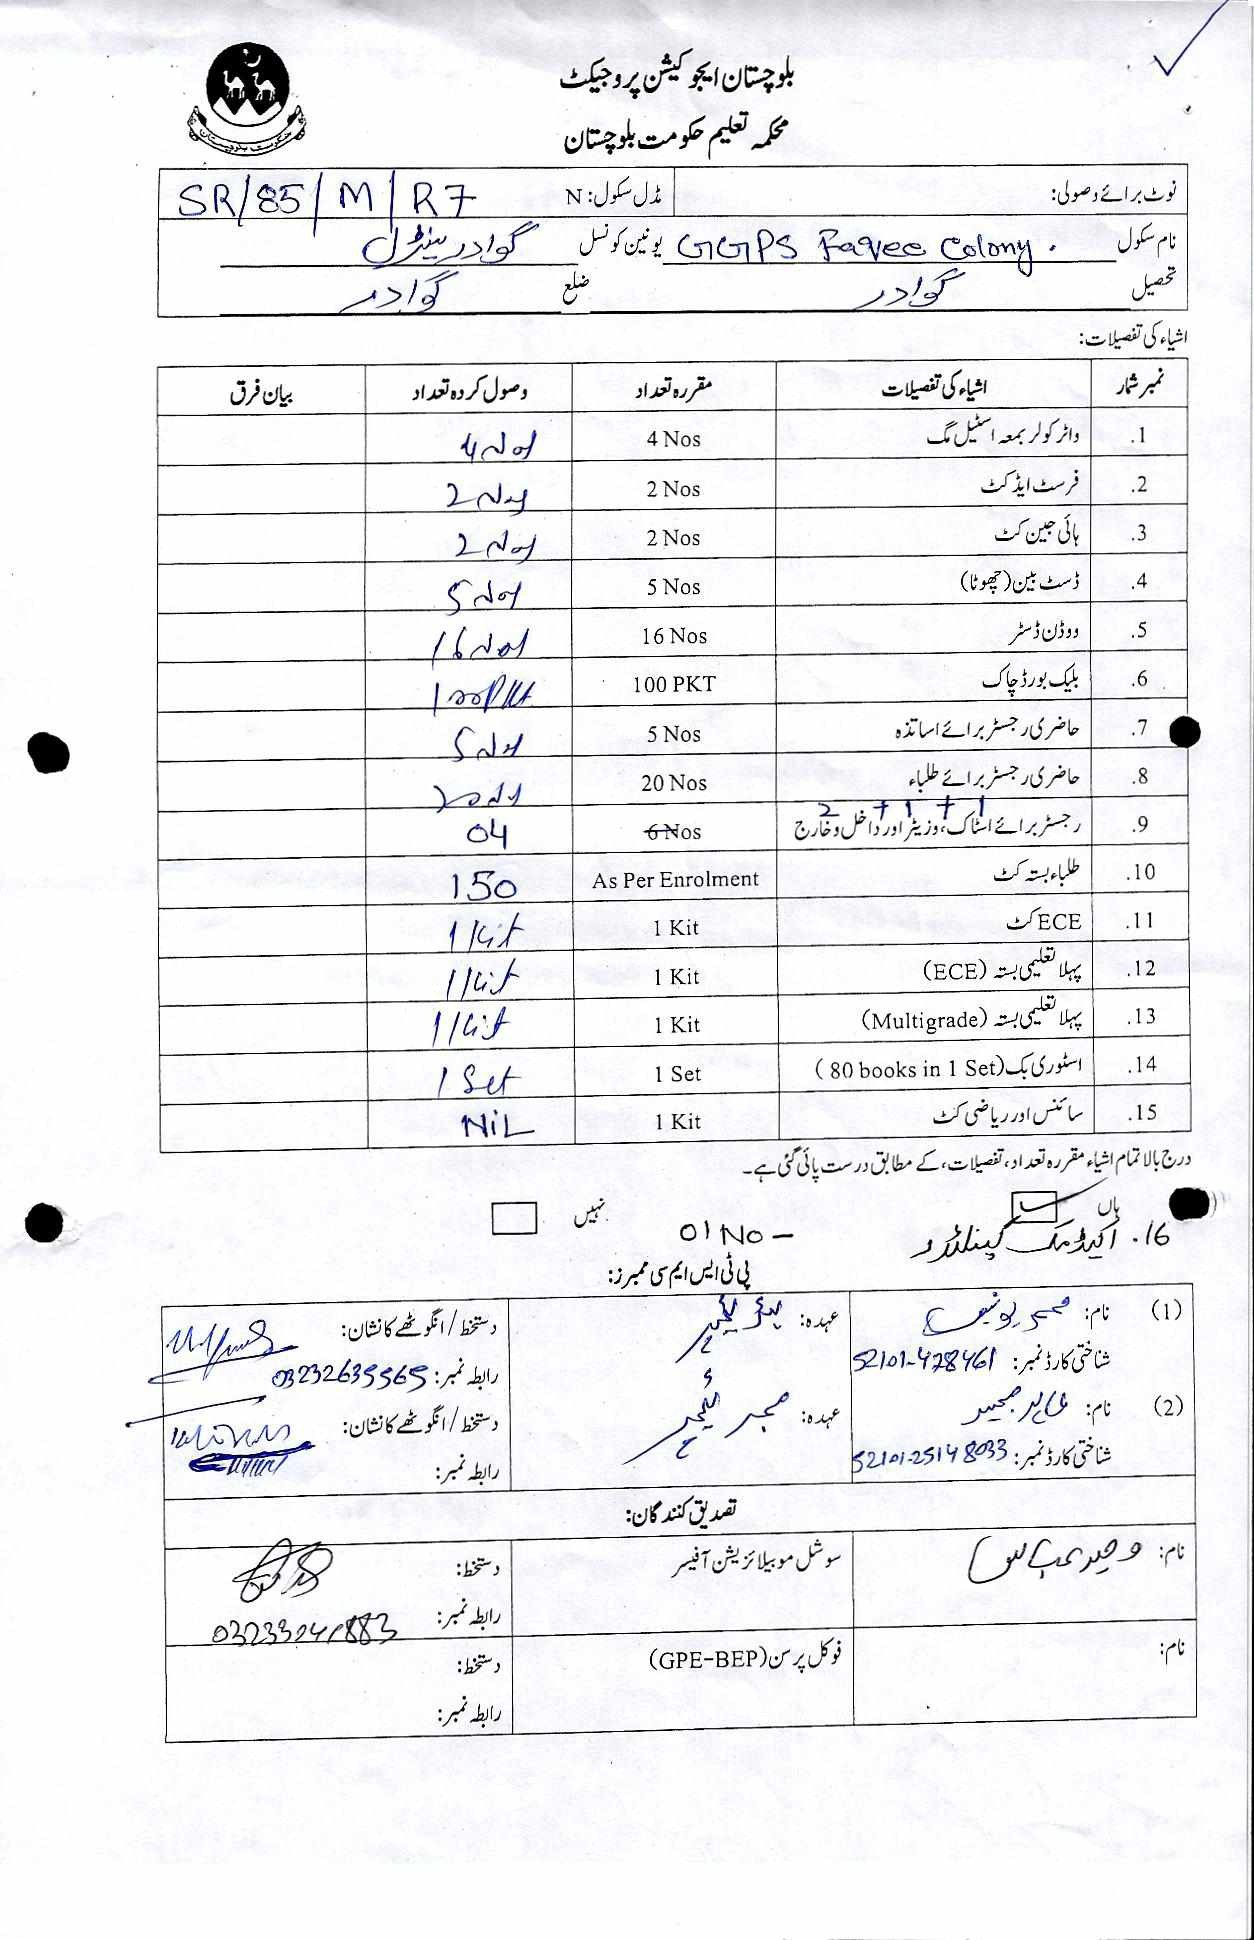 بلوچستان ایجوکیشن پروجیکٹ
محکمہ تعلیم حکومت بلوچستان
نوٹ برائے وصولی: مڈل سکول: N SR/85/M/R7
نام سکول GGPS Faqee Colony. یونین کونسل گوادر سینٹرل
تحصیل گوادر ضلع گوادر
اشیاء کی تفصیلات:
نمبر شمار اشیاء کی تفصیلات مقررہ تعداد وصول کردہ تعداد بیان فرق
.1 واٹر کولر بمعہ اسٹیل مگ 4 Nos 4 Nos
.2 فرسٹ ایڈ کٹ 2 Nos 2 Nos
.3 ہائی جین کٹ 2 Nos 2 Nos
.4 ڈسٹ بین (چھوٹا) 5 Nos 5 Nos
.5 ووڈن ڈسٹر 16 Nos 16 Nos
.6 بلیک بورڈ چاک 100 PKT 100 PKt
.7 حاضری رجسٹر برائے اساتذہ 5 Nos 5 Nos
.8 حاضری رجسٹر برائے طلباء 20 Nos 20 Nos
2 + 1 + 1
.9 رجسٹر برائے اسٹاک، وزیٹر اور داخل و خارج 6 Nos 04
.10 طلباء بستہ کٹ As Per Enrolment 150
.11 ECE کٹ 1 Kit 1 Kit
.12 پہلا تعلیمی بستہ (ECE) 1 Kit 1 Kit
.13 پہلا تعلیمی بستہ (Multigrade) 1 Kit 1 Kit
.14 اسٹوری بک (80 books in 1 Set) 1 Set 1 Set
.15 سائنس اور ریاضی کٹ 1 Kit NiL
درج بالا تمام اشیاء مقررہ تعداد، تفصیلات، کے مطابق درست پائی گئی ہے۔
ہاں نہیں
16. اکیڈمک کیلنڈر 01 No –
پی ٹی ایس ایم سی ممبرز:
(1) نام: محمد یونس عہدہ: ہیڈ ٹیچر دستخط/انگوٹھے کا نشان:
شناختی کارڈ نمبر: 52101-478461 رابطہ نمبر: 03232635565
(2) نام: عابد مجید عہدہ: ٹیچر دستخط/انگوٹھے کا نشان:
شناختی کارڈ نمبر: 52101-25148033 رابطہ نمبر:
تصدیق کنندگان:
نام: وحید عباس سوشل موبیلائزیشن آفیسر دستخط:
رابطہ نمبر:
نام: فوکل پرسن (GPE-BEP) دستخط:
رابطہ نمبر: